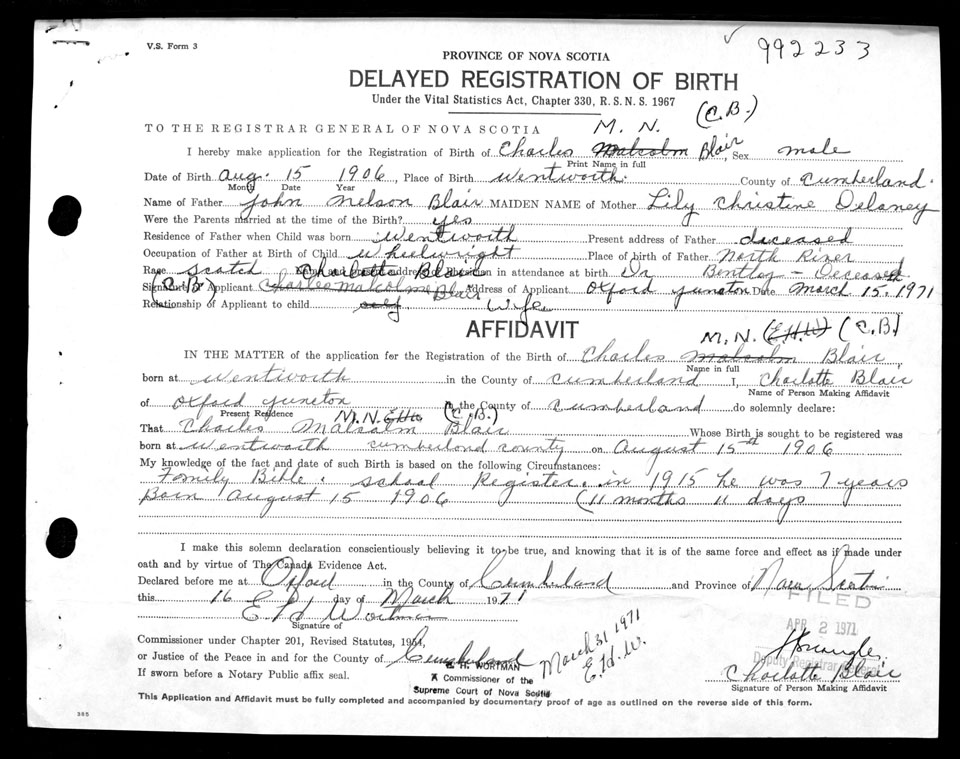 V.S. Form 3
992233
PROVINCE OF NOVA SCOTIA
DELAYED REGISTRATION OF BIRTH
Under the Vital Statistics Act, Chapter 330, R.S.N.S. 1967
M. N. (C.B.)
TO THE REGISTRAR GENERAL OF NOVA SCOTIA
I hereby make application for the Registration of Birth of Charles Malcolm Blair, Sex male
Print Name in full
Date of Birth Aug. 15 1906, Place of Birth Wentworth. County of Cumberland.
Month Date Year
Name of Father John Nelson Blair MAIDEN NAME of Mother Lily Christine Delaney
Were the Parents married at the time of the Birth? yes
Residence of Father when Child was born Wentworth Present address of Father deceased
Occupation of Father at Birth of Child Wheelwright Place of birth of Father North River
Race Scotch Name and address of Physician in attendance at birth Dr Bentley - Deceased
(C.B.) Charlotte Blair
Signature of Applicant Charles Malcolme Blair Address of Applicant Oxford Junction Date March 15, 1971
Relationship of Applicant to child self Wife
AFFIDAVIT
M. N. (E.H.W) (C.B)
IN THE MATTER of the application for the Registration of the Birth of Charles Malcolm Blair,
Name in full
born at Wentworth in the County of Cumberland I, Charlotte Blair
Name of Person Making Affidavit
of Oxford Juncton in the County of Cumberland do solemnly declare:
Present Residence M.N. EHW (C.B.)
That Charles Malcolm Blair Whose Birth is sought to be registered was
born at Wentworth cumberland county on August 15th 1906
My knowledge of the fact and date of such Birth is based on the following Circumstances:
Family Bible. School Register. in 1915 he was 7 years
Born August 15 1906 (11 months 11 days
I make this solemn declaration conscientiously believing it to be true, and knowing that it is of the same force and effect as if made under
oath and by virtue of The Canada Evidence Act.
Declared before me at Oxford in the County of Cumberland and Province of Nova Scotia
this 16 day of March 1971
FILED
APR 2 1971
Deputy Registrar General
E H Wortman
Signature of
Commissioner under Chapter 201, Revised Statutes, 1954,
or Justice of the Peace in and for the County of Cumberland
March 31 1971
E.H.W.
E. H. WORTMAN
If sworn before a Notary Public affix seal.
A Commissioner of the
Supreme Court of Nova Scotia
Charlotte Blair
Signature of Person Making Affidavit
This Application and Affidavit must be fully completed and accompanied by documentary proof of age as outlined on the reverse side of this form.
385